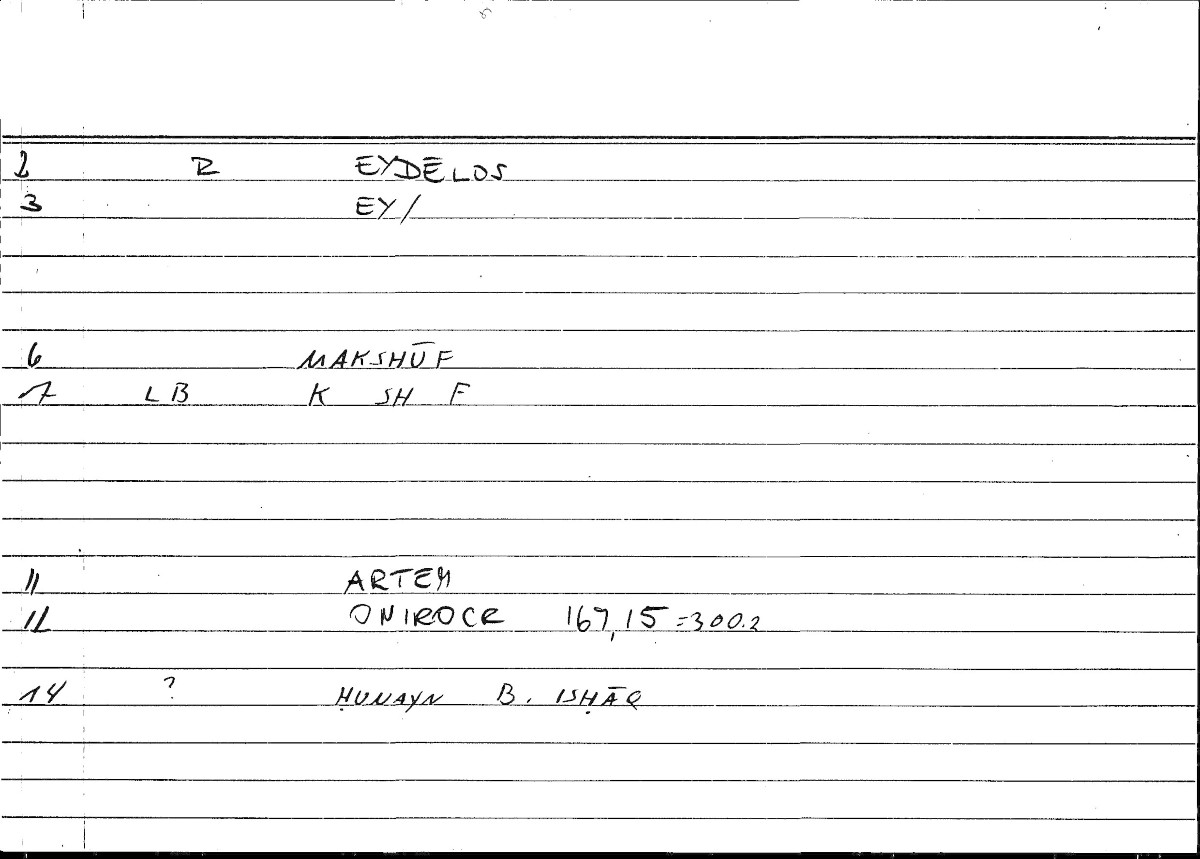 2 R EYDĒLOS
3 EY/
6 MAKSHŪF
7 LB K SH F
11 ARTEM
12 ONIROCR 167,15 =300.2
14 ? ḤUNAYN B. ISḤĀQ